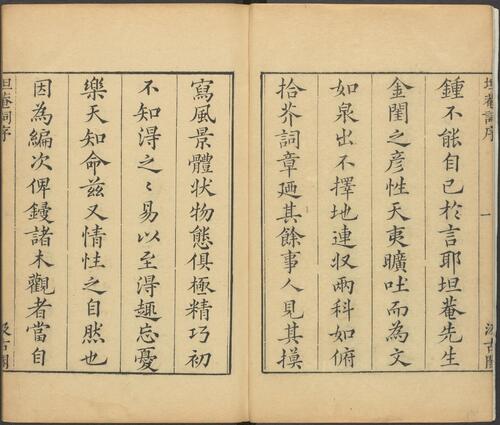 坦菴詞序
一
汲古閣
鍾不能自已於言耶坦菴先生
金閨之彥性天夷曠吐而為文
如泉出不擇地連収兩科如俯
拾芥詞章廼其餘事人見其摸
寫風景體狀物態俱極精巧初
不知得之〻易以至得趣忘憂
樂天知命兹又情性之自然也
因為編次俾鋟諸木觀者當自
坦菴詞序
汲古閣